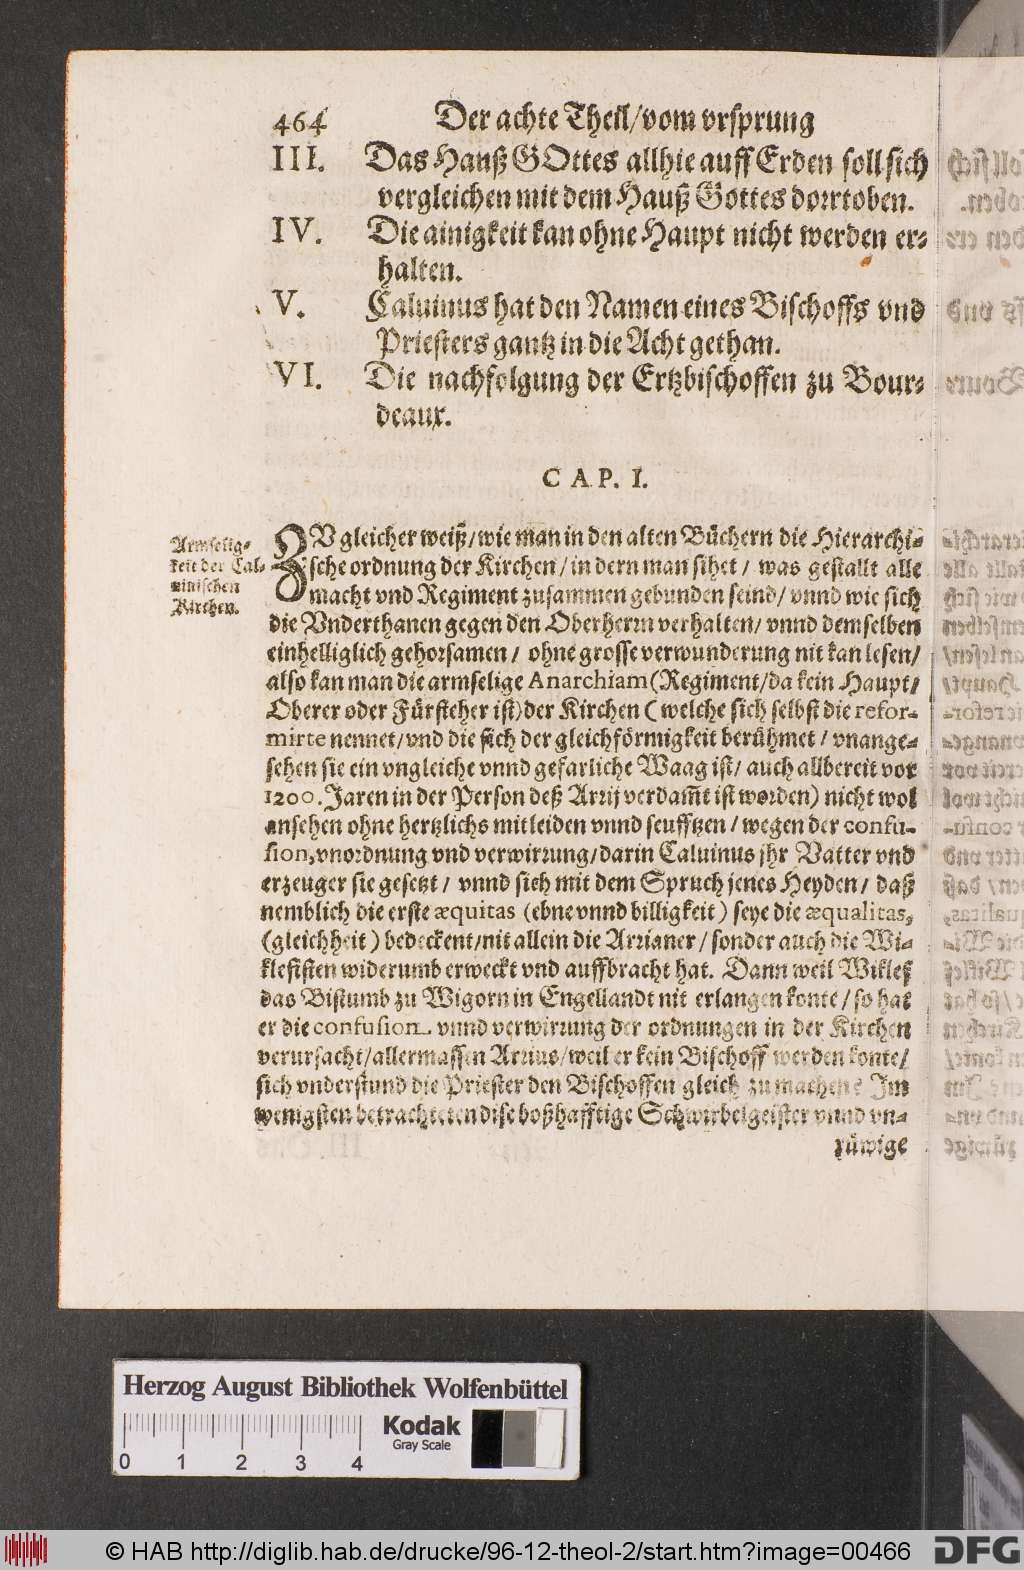 464 Der achte Theil/vom vrsprung
III. Das Hauß GOttes allhie auff Erden soll sich
vergleichen mit dem Hauß Gottes dorrtoben.
IV. Die ainigkeit kan ohne Haupt nicht werden er-
halten.
V. Caluinus hat den Namen eines Bischoffs vnd
Priesters gantz in die Acht gethan.
VI. Die nachfolgung der Ertzbischoffen zu Bour-
deaux.
CAP. I.
Armselig-
keit der Cal-
uinischen
Kirchen.
ZV gleicher weiß/wie man in den alten Büchern die Hierarchi-
sche ordnung der Kirchen/in dern man sihet/ was gestallt alle
macht vnd Regiment zusammen gebunden seind/ vnnd wie sich
die Vnderthanen gegen den Oberherrn verhalten/ vnnd demselben
einhelliglich gehorsamen/ ohne grosse verwunderung nit kan lesen/
also kan man die armselige Anarchiam (Regiment/da kein Haupt/
Oberer oder Fürsteher ist) der Kirchen (welche sich selbst die refor-
mirte nennet/vnd die sich der gleichförmigkeit berühmet/ vnange-
sehen sie ein vngleiche vnnd gefarliche Waag ist/ auch allbereit vor
1200. Jaren in der Person deß Arrij verdam̃t ist worden) nicht wol
ansehen ohne hertzlichs mitleiden vnnd seufftzen/ wegen der confu-
sion, vnordnung vnd verwirrung/darin Caluinus jhr Vatter vnd
erzeuger sie gesetzt/ vnnd sich mit dem Spruch jenes Heyden/ daß
nemblich die erste æquitas (ebne vnnd billigkeit) seye die æqualitas,
(gleichheit) bedeckent/nit allein die Arrianer/ sonder auch die Wi-
klefisten widerumb erweckt vnd auffbracht hat. Dann weil Wiklef
das Bistumb zu Wigorn in Engellandt nit erlangen konte/ so hat
er die confusion vnnd verwirrung der ordnungen in der Kirchen
verursacht/allermassen Arrius/weil er kein Bischoff werden konte/
sich vnderstund die Priester den Bischoffen gleich zu machen: Im
wenigsten betrachteten dise boßhafftige Schwirbelgeister vnnd vn-
rüwige
Herzog August Bibliothek Wolfenbüttel
Kodak
Gray Scale
0 1 2 3 4
© HAB http://diglib.hab.de/drucke/96-12-theol-2/start.htm?image=00466
DFG